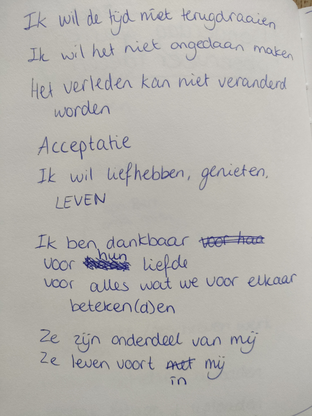 Ik wil de tijd niet terugdraaien
Ik wil het niet ongedaan maken
Het verleden kan niet veranderd
worden
Acceptatie
Ik wil liefhebben, genieten,
LEVEN
Ik ben dankbaar voor haa
voor hun liefde
voor alles wat we voor elkaar
beteken(d)en
Ze zijn onderdeel van mij
Ze leven voort met mij
in